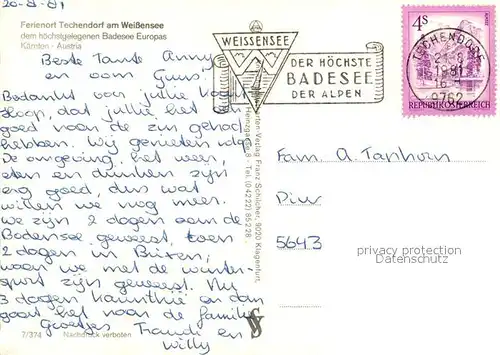 20-8-81
Ferienort Techendorf am Weißensee
dem höchstgelegenen Badesee Europas
Kärnten - Austria
Beste Tante Anny
en oom Guus.
Bedankt voor jullie
Hoop, dat jullie het
goed naar de zin gehad
hebben. Wij genieten van
De omgeving, het weer,
eten en drinken zijn
erg goed, dus wat
willen we nog meer.
We zijn 2 dagen aan de
Bodensee geweest, toen
2 dagen in
waar we met de winter-
sport zijn geweest. Nu
3 dagen Karinthië en dan
gaat het naar de familie
Groetjes Traudi en
Willy
7/374 Nachdruck verboten
WEISSENSEE
DER HÖCHSTE
BADESEE
DER ALPEN
4S
REPUBLIK ÖSTERREICH
TECHENDORF
1981
9762
Karten-Verlag Franz Schilcher, 9020 Klagenfurt,
8 - Tel. (0 42 22) 85 2 28
Fam. A. Taphorn
5643
privacy protection
Datenschutz